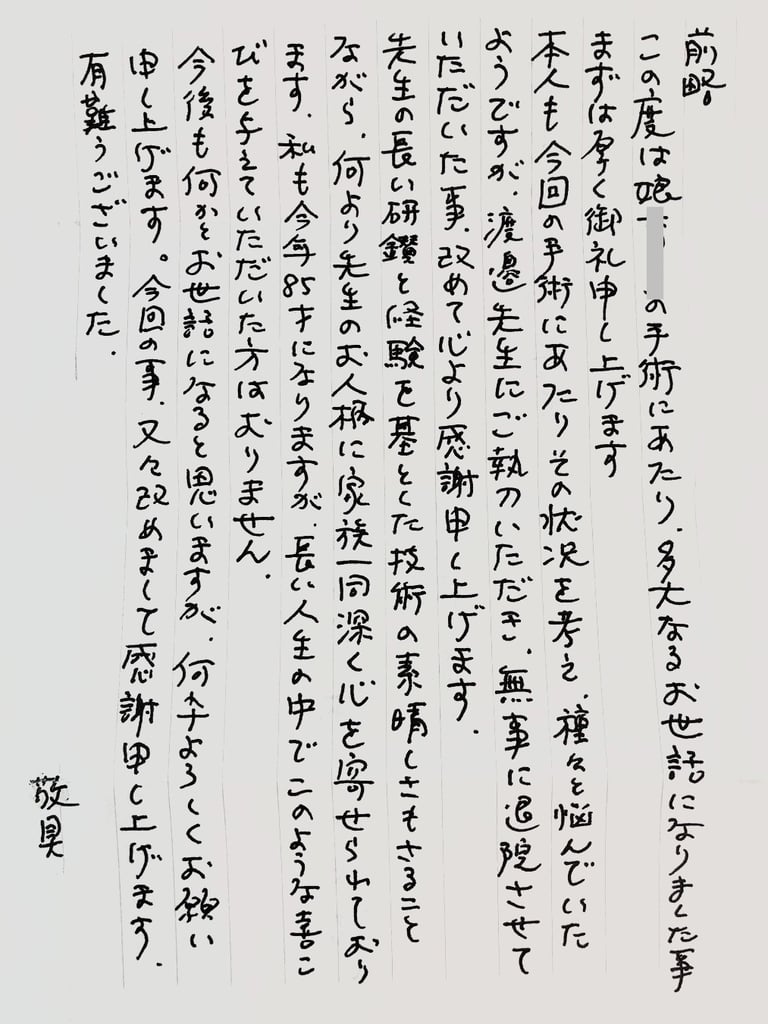 前略
この度は娘の手術にあたり、多大なるお世話になりました事
まずは厚く御礼申し上げます
本人も今回の手術にあたりその状況を考え、種々と悩んでいた
ようですが、渡邊先生にご執刀いただき、無事に退院させて
いただいた事、改めて心より感謝申し上げます。
先生の長い研鑽と経験を基とした技術の素晴しさもさること
ながら、何より先生のお人柄に家族一同深く心を寄せられており
ます。私も今年85才になりますが、長い人生の中でこのような喜こ
びを与えていただいた方はおりません。
今後も何かとお世話になると思いますが、何卒よろしくお願い
申し上げます。今回の事、又々改めまして感謝申し上げます。
有難うございました。
敬具